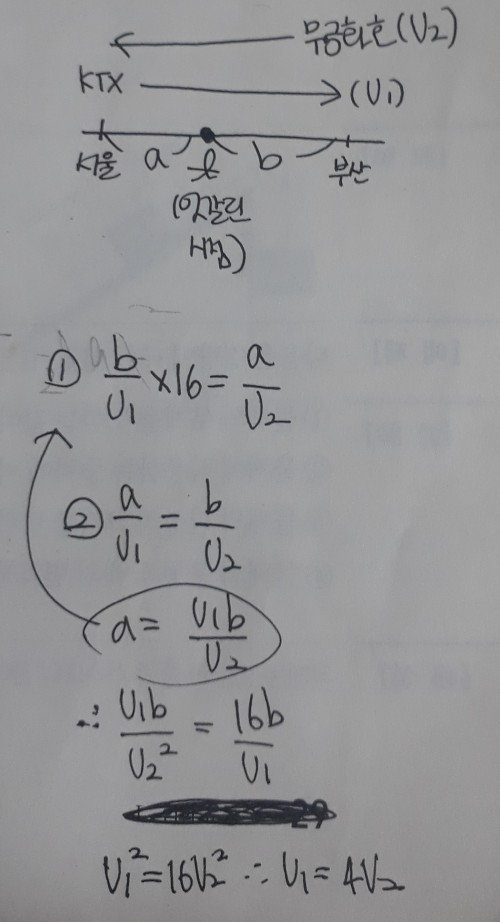 무궁화호(V₂)
KTX → (V₁)
서울 a t b 부산
(엇갈린
시점)
① b/V₁ ×16 = a/V₂
② a/V₁ = b/V₂
a = V₁b/V₂
∴ V₁b/V₂² = 16b/V₁
V₁² = 16V₂² ∴ V₁ = 4V₂